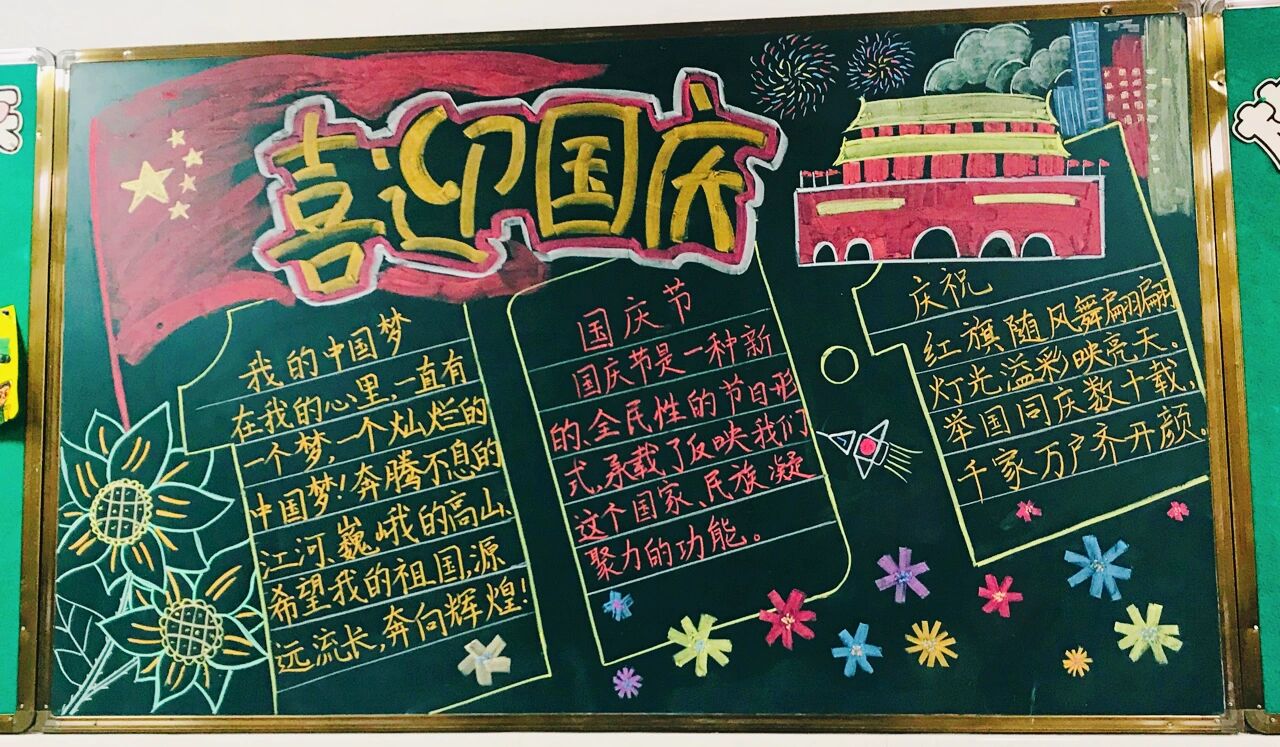 喜迎国庆
我的中国梦
在我的心里,一直有
一个梦,一个灿烂的
中国梦!奔腾不息的
江河、巍峨的高山、
希望我的祖国,源
远流长,奔向辉煌!
国庆节
国庆节是一种新
的、全民性的节日形
式、承载了反映我们
这个国家、民族,凝
聚力的功能。
庆祝
红旗随风舞翩翩
灯光溢彩映亮天。
举国同庆数十载,
千家万户齐开颜。